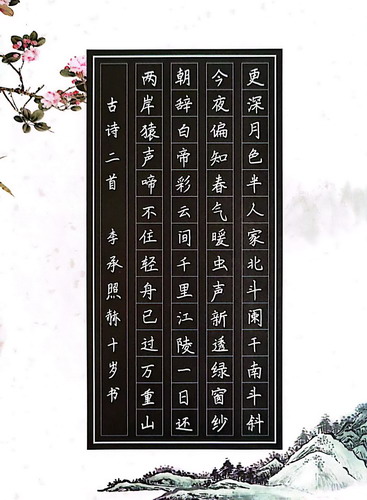 更深月色半人家北斗阑干南斗斜
今夜偏知春气暖虫声新透绿窗纱
朝辞白帝彩云间千里江陵一日还
两岸猿声啼不住轻舟已过万重山
古诗二首 李承照赫十岁书